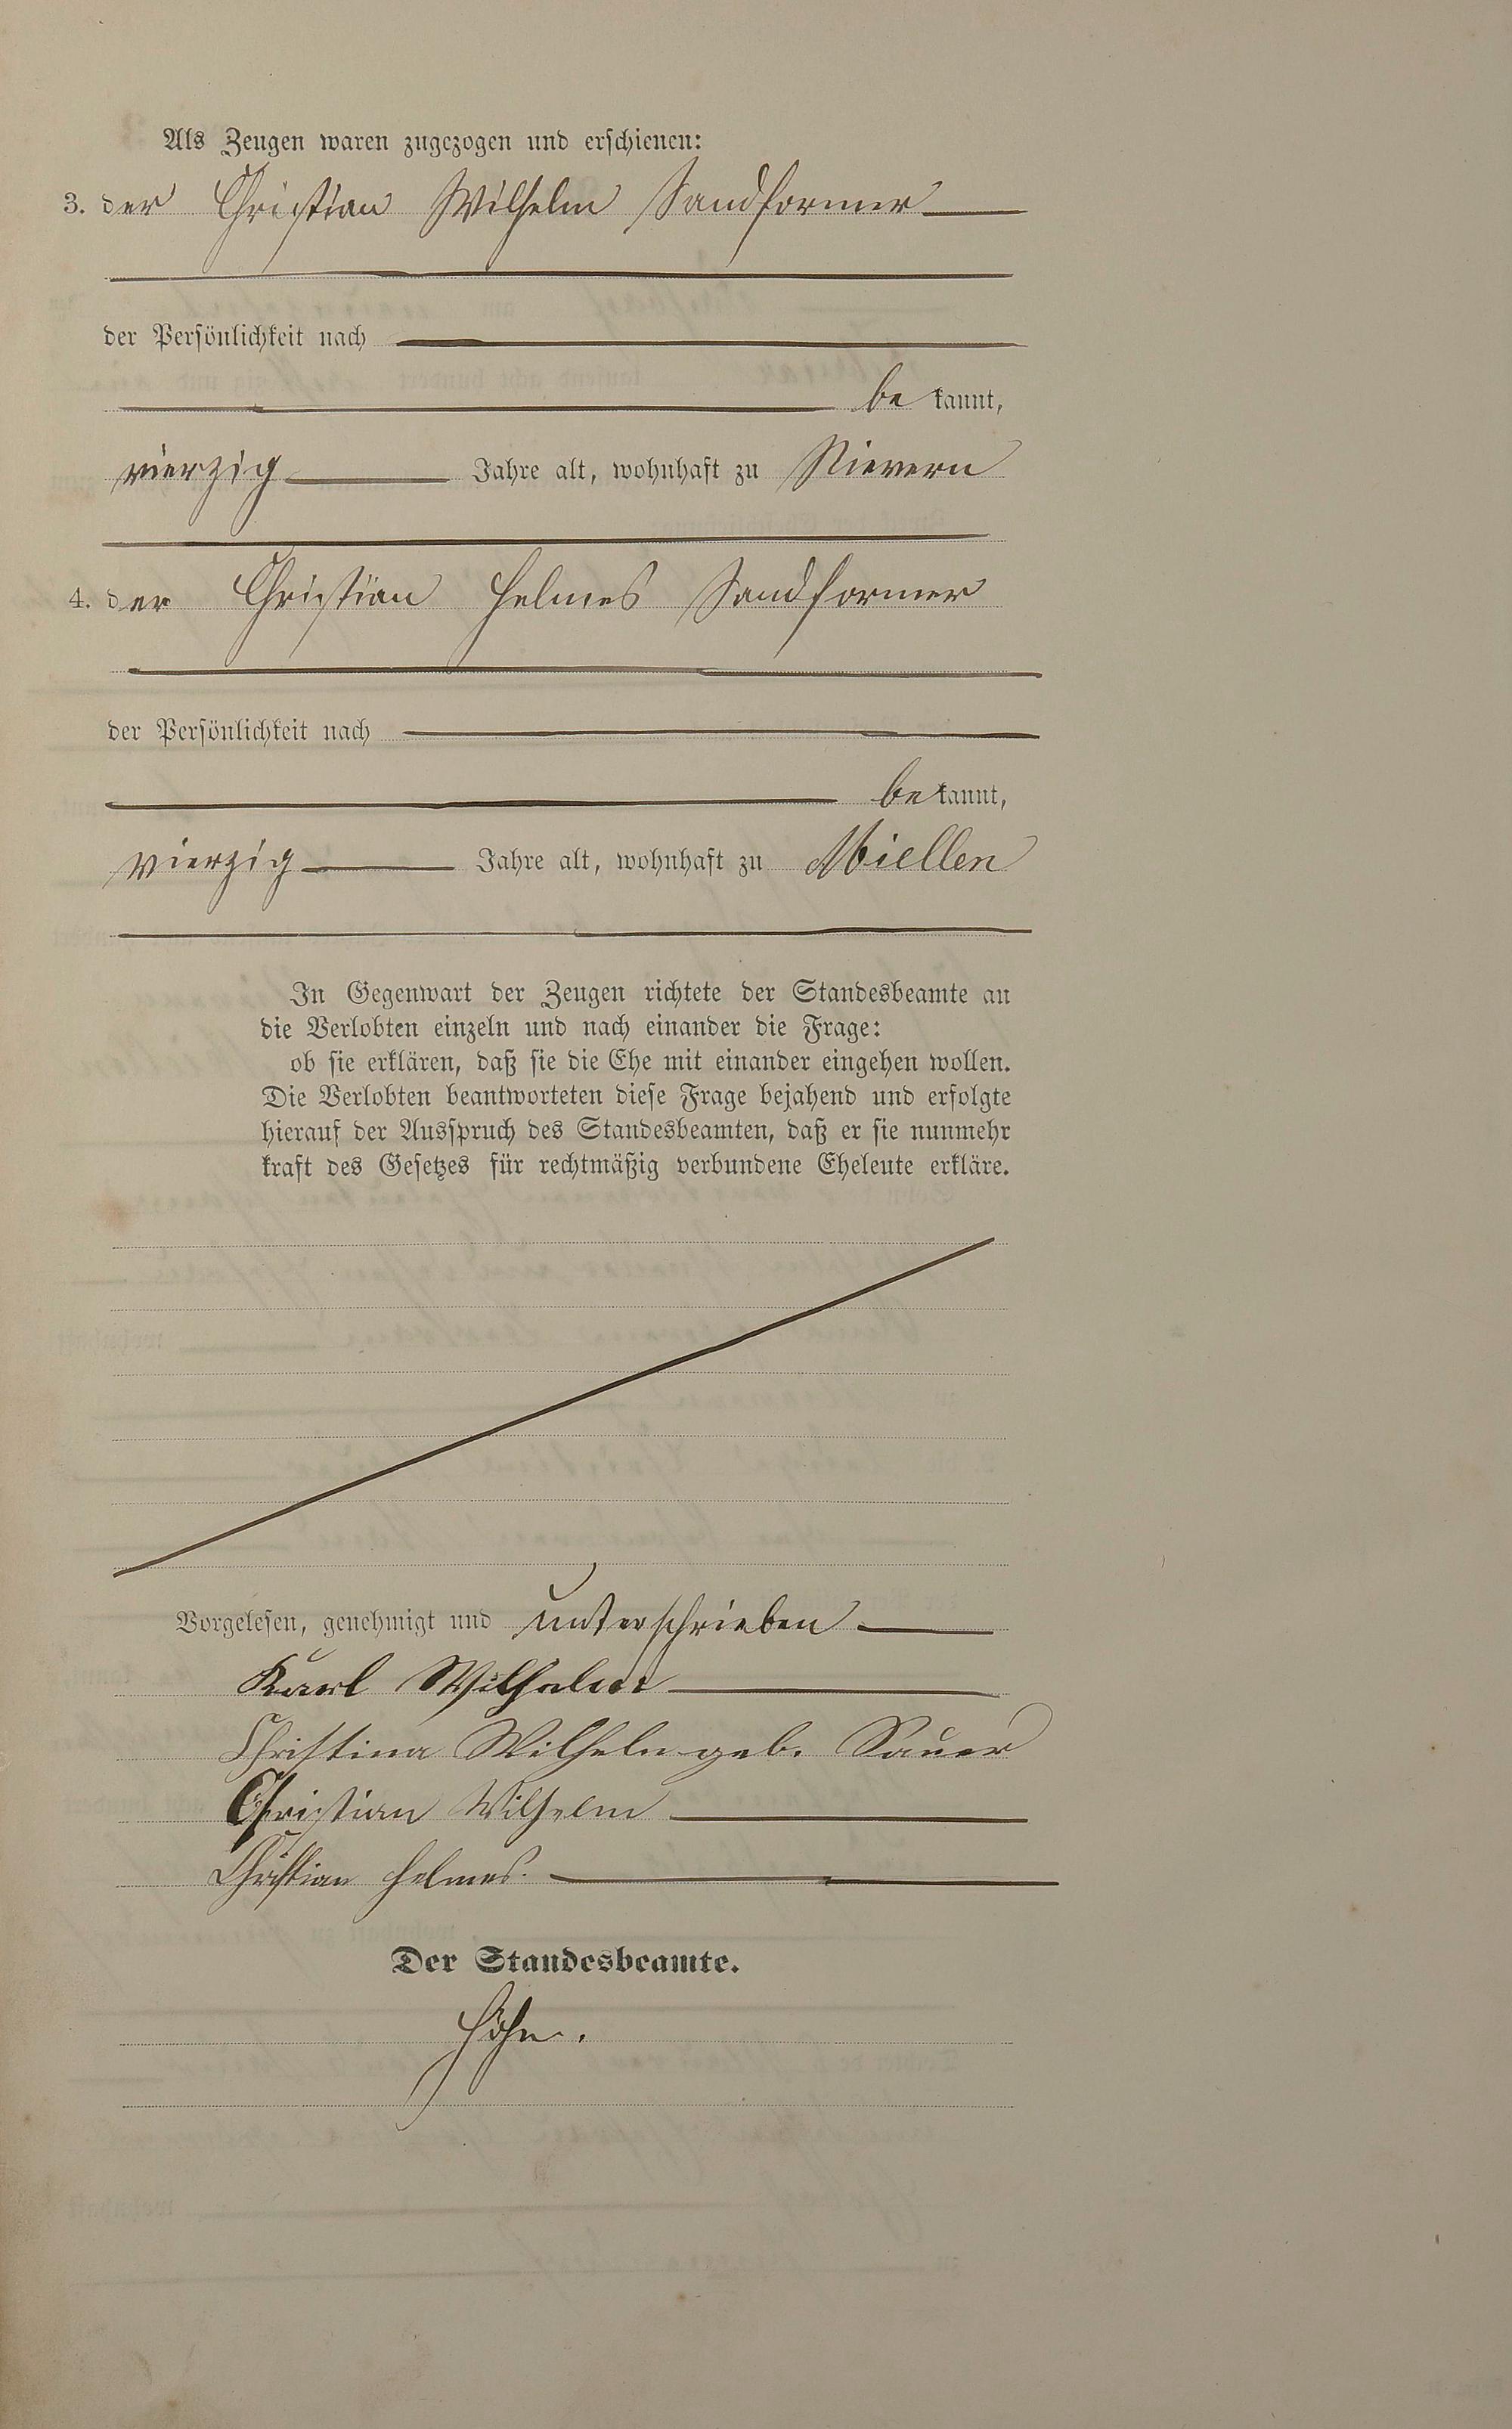 Als Zeugen waren zugezogen und erschienen:
3. der Christian Wilhelm Sandformer
der Persönlichkeit nach
be kannt,
vierzig Jahre alt, wohnhaft zu Nievern
4. der Christian Helmes Sandformer
der Persönlichkeit nach
be kannt,
vierzig Jahre alt, wohnhaft zu Miellen
In Gegenwart der Zeugen richtete der Standesbeamte an
die Verlobten einzeln und nach einander die Frage:
ob sie erklären, daß sie die Ehe mit einander eingehen wollen.
Die Verlobten beantworteten diese Frage bejahend und erfolgte
hierauf der Ausspruch des Standesbeamten, daß er sie nunmehr
kraft des Gesetzes für rechtmäßig verbundene Eheleute erkläre.
Vorgelesen, genehmigt und unterschrieben
Karl Wilhelm
Christina Wilhelm geb. Sauer
Christian Wilhelm
Christian Helmes.
Der Standesbeamte.
Höhn.